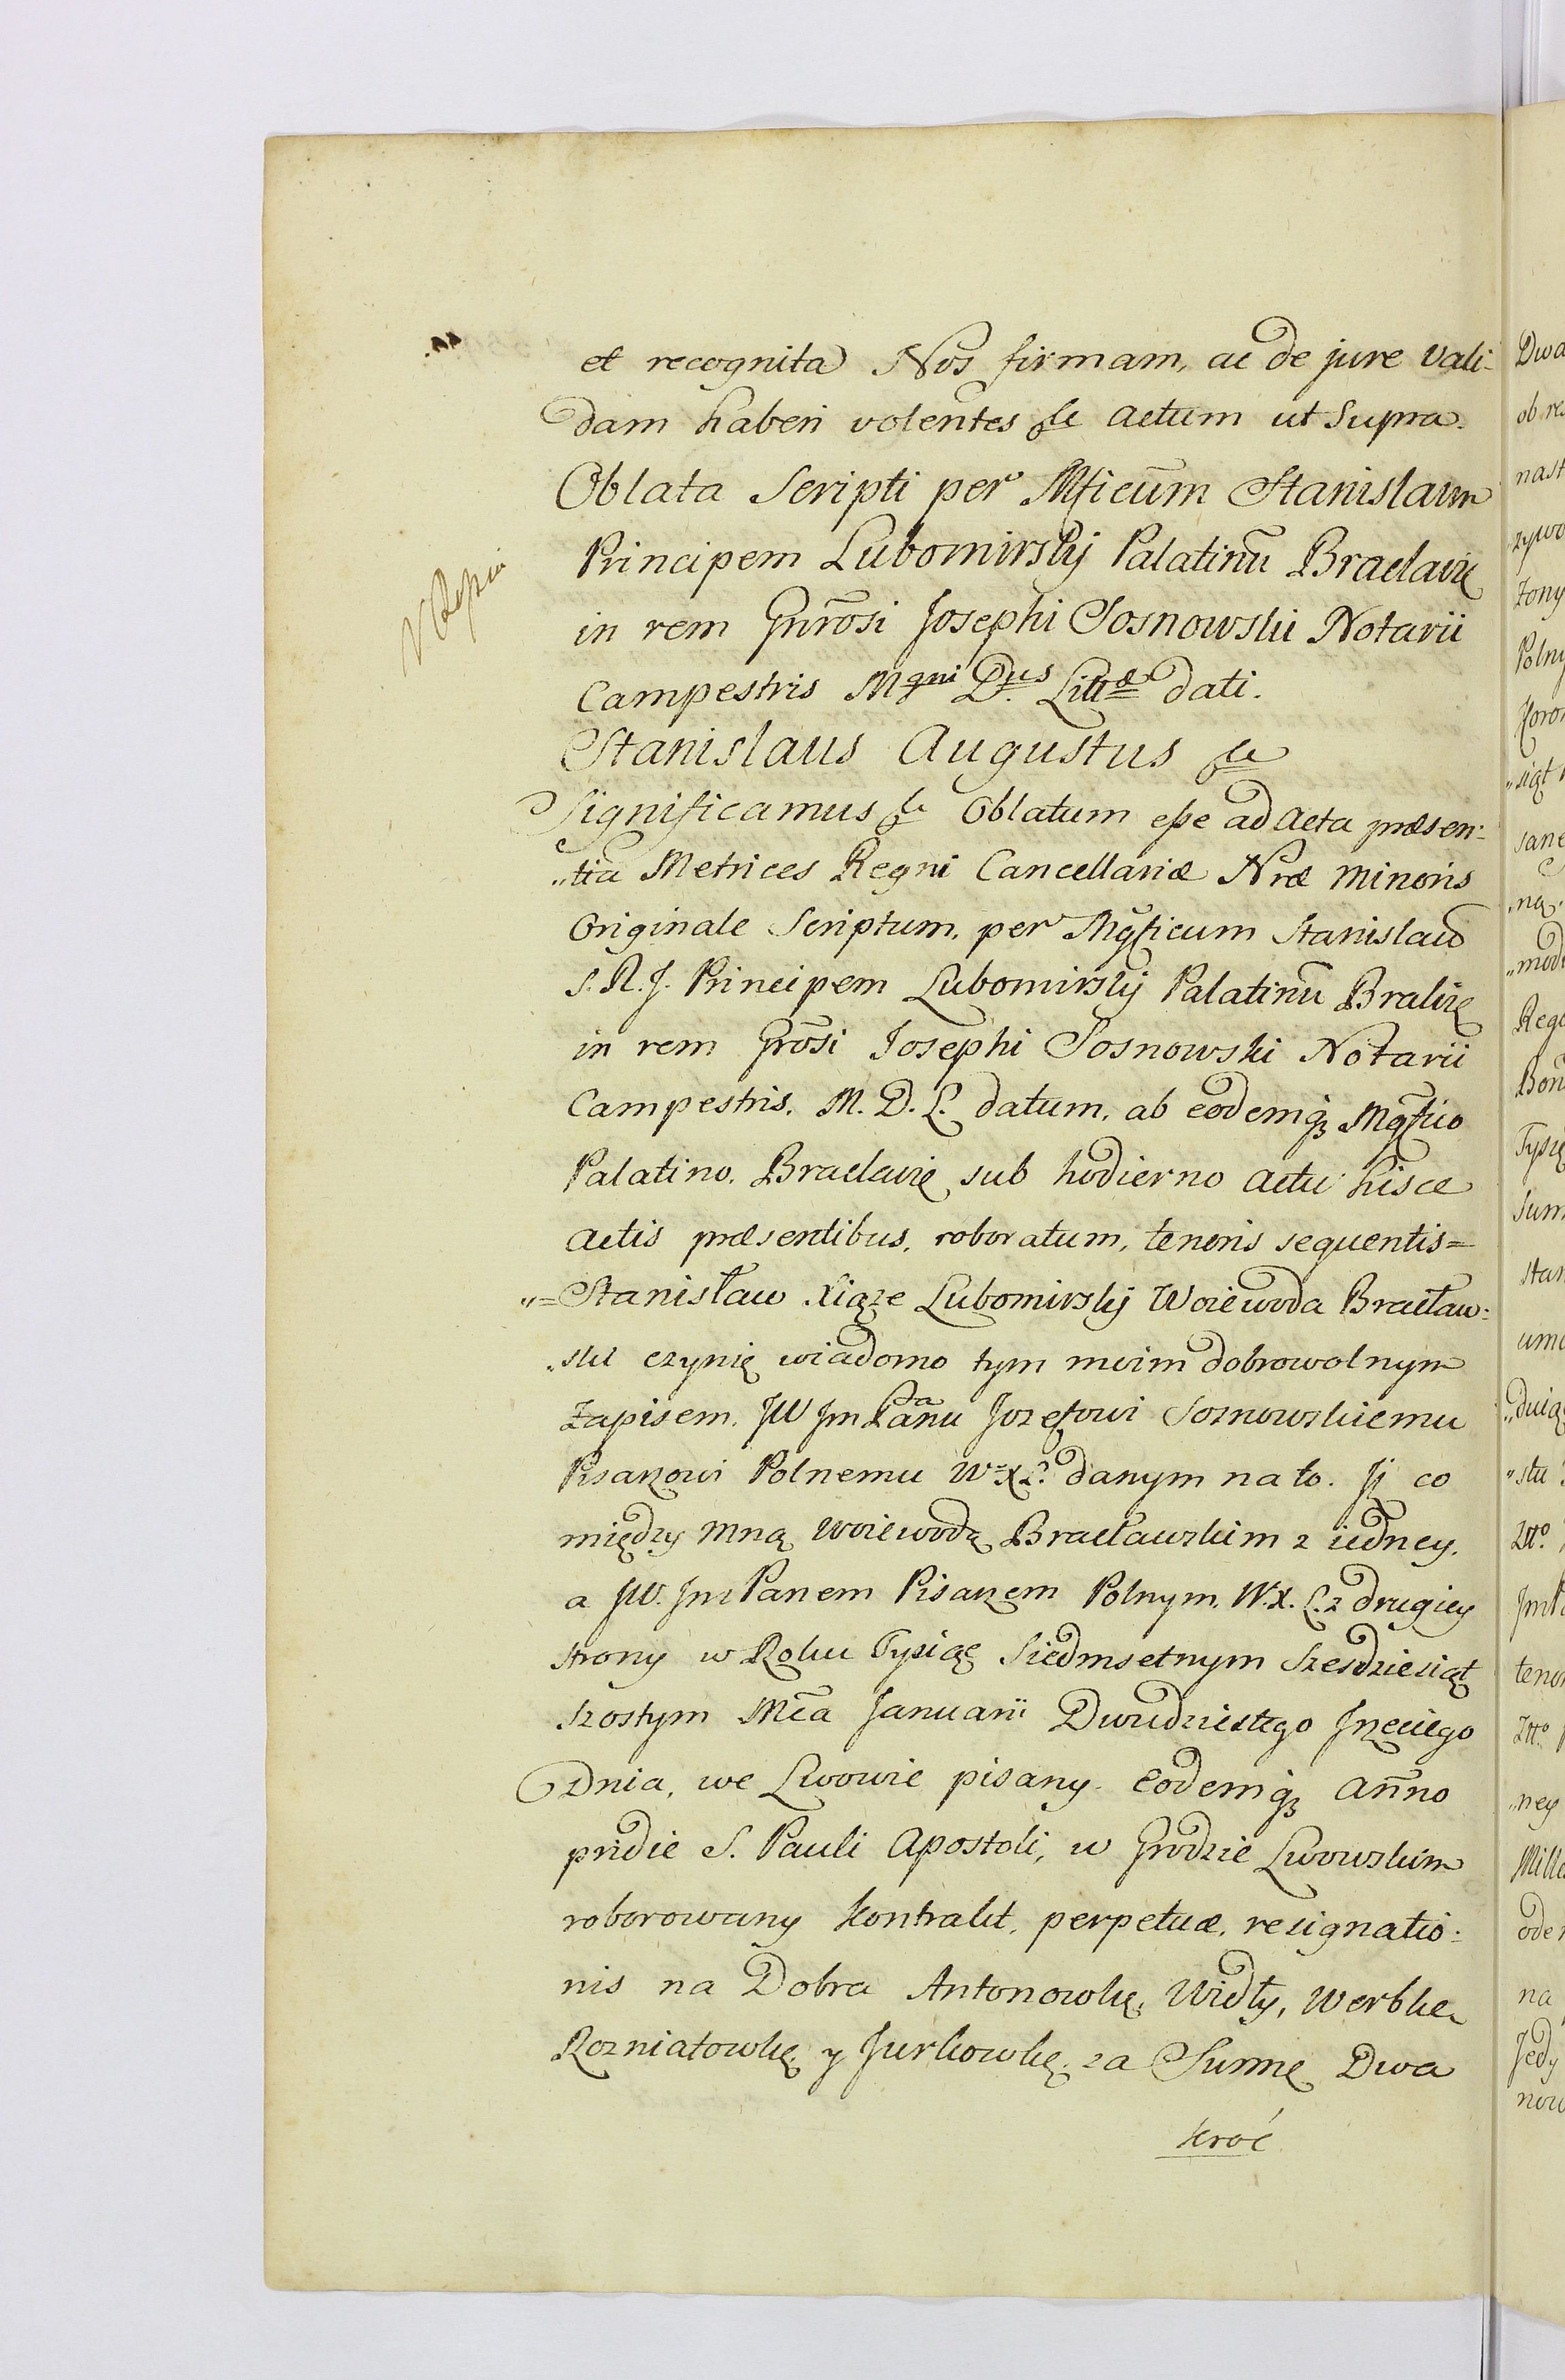 et recognita Nos firmam, ac de jure vali-
dam haberi volentes &c Actum ut supra.
Oblata Scripti per Mficum Stanislaum
Principem Lubomirskij Palatinū Braclavię
in rem Gnrosi Josephi Sosnowski Notarii
Campestris Mgni Dus Littæ dati.
Stanislaus Augustus &c
Significamus &c Oblatum eße ad Acta præsen-
„tia Metrices Regni Cancellariæ Nræ minoris
Originale Scriptum, per Mgficum Stanislaū
S. R. J. Principem Lubomirskij Palatinū Braliæ
in rem Grosi Josephi Sosnowski Notarii
Campestris. M. D. L. datum, ab eodemq3 Mgfico
Palatino. Braclavię sub hodierno actu hisce
actis præsentibus, roboratum, tenoris sequentis=
„=Stanisław Xiąze Lubomirskij Woiewoda Bracław-
„ski czynię wiadomo tym moim dobrowolnym
Zapisem. JW JmPanu Jozefowi Sosnowskiemu
Pisarzowi Polnemu W. X. L. danym na to. Jż co
między mną Woiewodą Bracławskim z iedney,
a JW. JmPanem Pisarzem Polnym. W. X. L. z drugiey
strony w Roku Tysiąc Siedmsetnym Szesdziesiąt
szostym Mca Januarii Dwudziestego Trzeciego
Dnia, we Lwowie pisany. Eodemq3 Anno
pridie S. Pauli Apostoli, w Grodzie Lwowskim
roborowany kontrakt, perpetuæ, resignatio-
nis na Dobra Antonowkę, Widły, Werbke
Rozniatowkę y Jurkowkę, za Summę Dwa
kroć